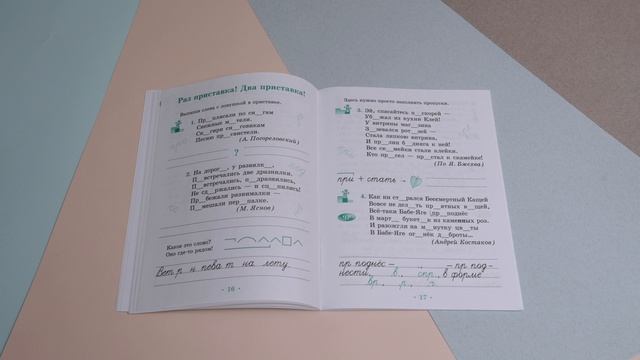 Раз приставка! Два приставка!
Выпиши слова с
в приставке.
1. Пр__плясали по сн__гам
Снежные м__тели.
Сн__гири сн__говикам
Песню пр__свистели.
(А. Погореловский)
?
2. На дорог__, у развилк__,
П__встречались две дразнилки.
П__встречались, п__дразнились,
Не сд__ржались — и сц__пились!
Пр__бежали разнималки —
П__мешали пер__палке.
(М. Яснов)
Какое это слово?
Оно где-то рядом!
Вет р н певат на лету
· 16 ·
Здесь нужно просто заполнить пропуски.
3. Эй, спасайтесь п__скорей —
Уб__жал из кухни Клей!
У витрины маг__зина
З__зевался рот__зей —
Стала липкою витрина,
И пр__лип б__дняга к ней!
Все ск__мейки стали клейки.
Кто пр__сел — пр__стал к скамейке!
(По Я. Бжехва)
при + стать →
4. Как ни ст__рался Бессмертный Кащей
Вовсе не дел__ть пр__ятных в__щей,
Всё-таки Бабе-Яге пр__поднёс
В март__ букет__к из каменных роз.
И разожгли на м__нутку цв__ты
В Бабе-Яге ог__нёк д__броты...
(Андрей Костаков)
пр поднёс – – пр под-
нести, в. спр. в форме
вр. р. з.
· 17 ·